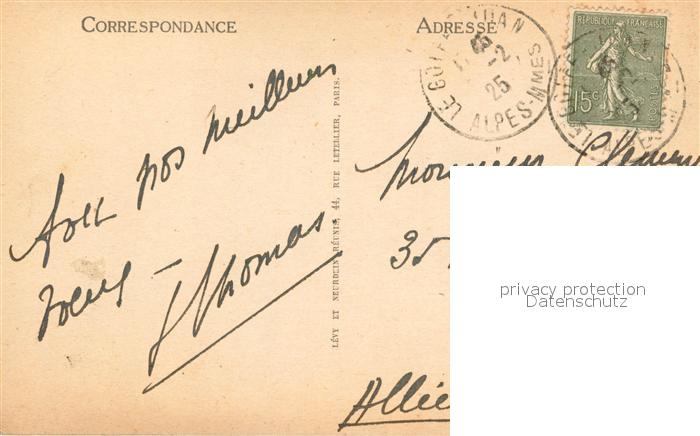 CORRESPONDANCE
ADRESSE
RÉPUBLIQUE FRANÇAISE
15c
POSTES
LE GOLFE-JUAN
-2
25
ALPES-MMES
Avec nos meilleurs
vœux —
J Thomas
LÉVY ET NEURDEIN RÉUNIS, 44, RUE LETELLIER, PARIS.
Monsieur
35
Allie
privacy protection
Datenschutz